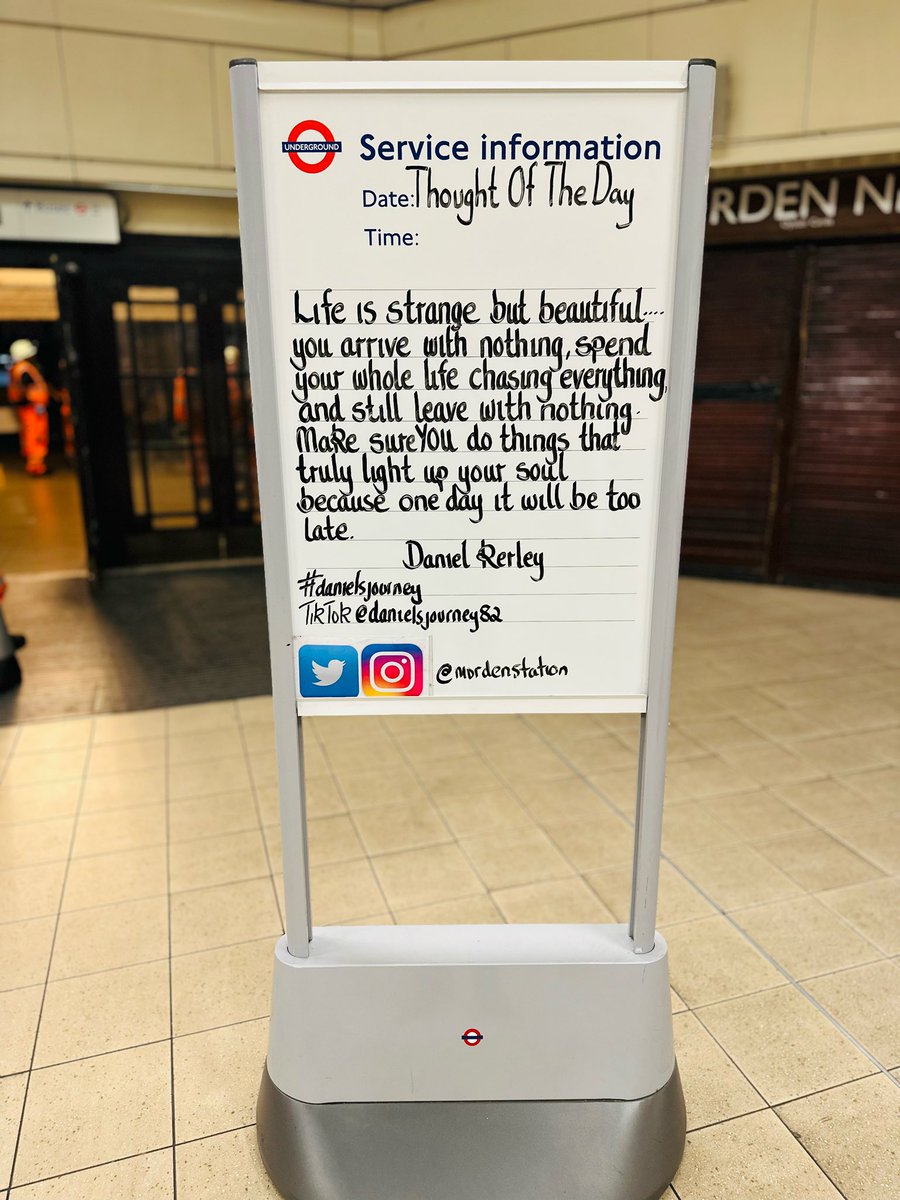 UNDERGROUND
Service information
Date: Thought Of The Day
Time:
Life is strange but beautiful....
you arrive with nothing, spend
your whole life chasing everything,
and still leave with nothing.
Make sure YOU do things that
truly light up your soul
because one day it will be too
late.
Daniel Kerley
#danielsjourney
TikTok @danielsjourney82
@mordenstation
RDEN N